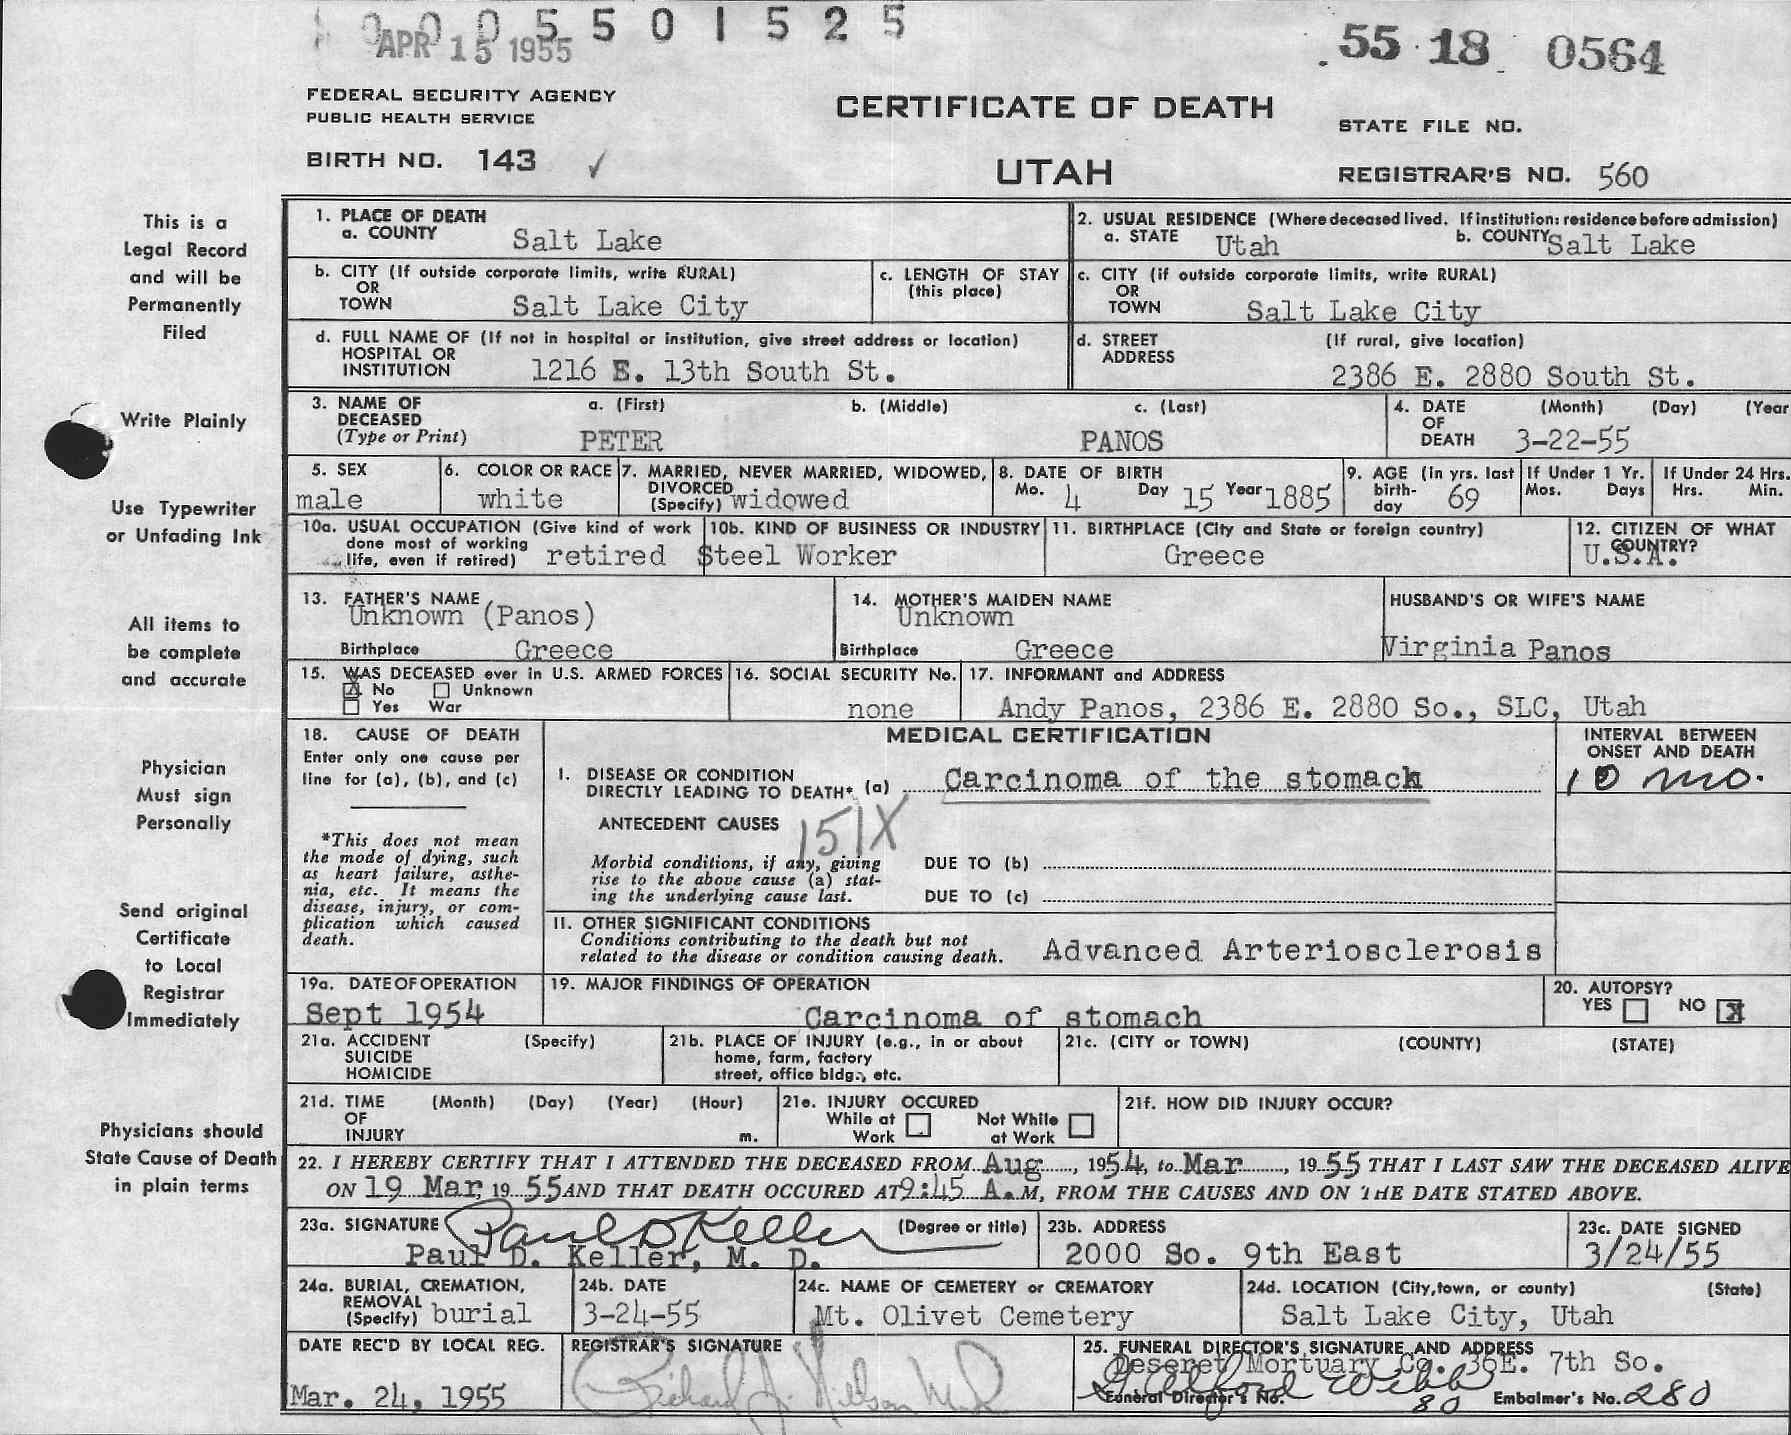 0 0 0 5 5 5 0 1 5 2 5
APR 15 1955
55 18 0564
FEDERAL SECURITY AGENCY
PUBLIC HEALTH SERVICE
CERTIFICATE OF DEATH
STATE FILE NO.
BIRTH NO. 143 ✓
UTAH
REGISTRAR'S NO. 560
This is a
Legal Record
and will be
Permanently
Filed
Write Plainly
Use Typewriter
or Unfading Ink
All items to
be complete
and accurate
Physician
Must sign
Personally
Send original
Certificate
to Local
Registrar
Immediately
Physicians should
State Cause of Death
in plain terms
1. PLACE OF DEATH
a. COUNTY Salt Lake
2. USUAL RESIDENCE (Where deceased lived. If institution: residence before admission)
a. STATE Utah b. COUNTY Salt Lake
b. CITY (If outside corporate limits, write RURAL)
OR
TOWN Salt Lake City
c. LENGTH OF STAY
(this place)
c. CITY (if outside corporate limits, write RURAL)
OR
TOWN Salt Lake City
d. FULL NAME OF (If not in hospital or institution, give street address or location)
HOSPITAL OR
INSTITUTION 1216 E. 13th South St.
d. STREET (If rural, give location)
ADDRESS
2386 E. 2880 South St.
3. NAME OF a. (First) b. (Middle) c. (Last)
DECEASED
(Type or Print) PETER PANOS
4. DATE (Month) (Day) (Year
OF
DEATH 3-22-55
5. SEX
male
6. COLOR OR RACE
white
7. MARRIED, NEVER MARRIED, WIDOWED,
DIVORCED
(Specify) widowed
8. DATE OF BIRTH
Mo. 4 Day 15 Year 1885
9. AGE (in yrs. last
birth-
day 69
If Under 1 Yr.
Mos. Days
If Under 24 Hrs.
Hrs. Min.
10a. USUAL OCCUPATION (Give kind of work
done most of working
life, even if retired) retired
10b. KIND OF BUSINESS OR INDUSTRY
Steel Worker
11. BIRTHPLACE (City and State or foreign country)
Greece
12. CITIZEN OF WHAT
COUNTRY?
U.S.A.
13. FATHER'S NAME
Unknown (Panos)
Birthplace Greece
14. MOTHER'S MAIDEN NAME
Unknown
Birthplace Greece
HUSBAND'S OR WIFE'S NAME
Virginia Panos
15. WAS DECEASED ever in U.S. ARMED FORCES
☒ No ☐ Unknown
☐ Yes War
16. SOCIAL SECURITY No.
none
17. INFORMANT and ADDRESS
Andy Panos, 2386 E. 2880 So., SLC, Utah
18. CAUSE OF DEATH
Enter only one cause per
line for (a), (b), and (c)
*This does not mean
the mode of dying, such
as heart failure, asthe-
nia, etc. It means the
disease, injury, or com-
plication which caused
death.
MEDICAL CERTIFICATION
INTERVAL BETWEEN
ONSET AND DEATH
I. DISEASE OR CONDITION
DIRECTLY LEADING TO DEATH* (a) Carcinoma of the stomach
10 mo.
ANTECEDENT CAUSES
151X
Morbid conditions, if any, giving
rise to the above cause (a) stat-
ing the underlying cause last.
DUE TO (b)
DUE TO (c)
II. OTHER SIGNIFICANT CONDITIONS
Conditions contributing to the death but not
related to the disease or condition causing death.
Advanced Arteriosclerosis
19a. DATE OF OPERATION
Sept 1954
19. MAJOR FINDINGS OF OPERATION
Carcinoma of stomach
20. AUTOPSY?
YES ☐ NO ☒
21a. ACCIDENT (Specify)
SUICIDE
HOMICIDE
21b. PLACE OF INJURY (e.g., in or about
home, farm, factory
street, office bldg., etc.
21c. (CITY or TOWN) (COUNTY) (STATE)
21d. TIME (Month) (Day) (Year) (Hour)
OF
INJURY m.
21e. INJURY OCCURED
While at Work ☐ Not While at Work ☐
21f. HOW DID INJURY OCCUR?
22. I HEREBY CERTIFY THAT I ATTENDED THE DECEASED FROM Aug, 1954, to Mar, 1955 THAT I LAST SAW THE DECEASED ALIVE
ON 19 Mar, 1955 AND THAT DEATH OCCURED AT 9:45 A.M, FROM THE CAUSES AND ON THE DATE STATED ABOVE.
23a. SIGNATURE Paul D Keller (Degree or title)
Paul D. Keller, M. D.
23b. ADDRESS
2000 So. 9th East
23c. DATE SIGNED
3/24/55
24a. BURIAL, CREMATION,
REMOVAL
(Specify) burial
24b. DATE
3-24-55
24c. NAME OF CEMETERY or CREMATORY
Mt. Olivet Cemetery
24d. LOCATION (City, town, or county) (State)
Salt Lake City, Utah
DATE REC'D BY LOCAL REG.
Mar. 24, 1955
REGISTRAR'S SIGNATURE
Richard J. Nilson M.D.
25. FUNERAL DIRECTOR'S SIGNATURE AND ADDRESS
Deseret Mortuary Co. 36 E. 7th So.
Webb
Funeral Director's No. 80 Embalmer's No. 280